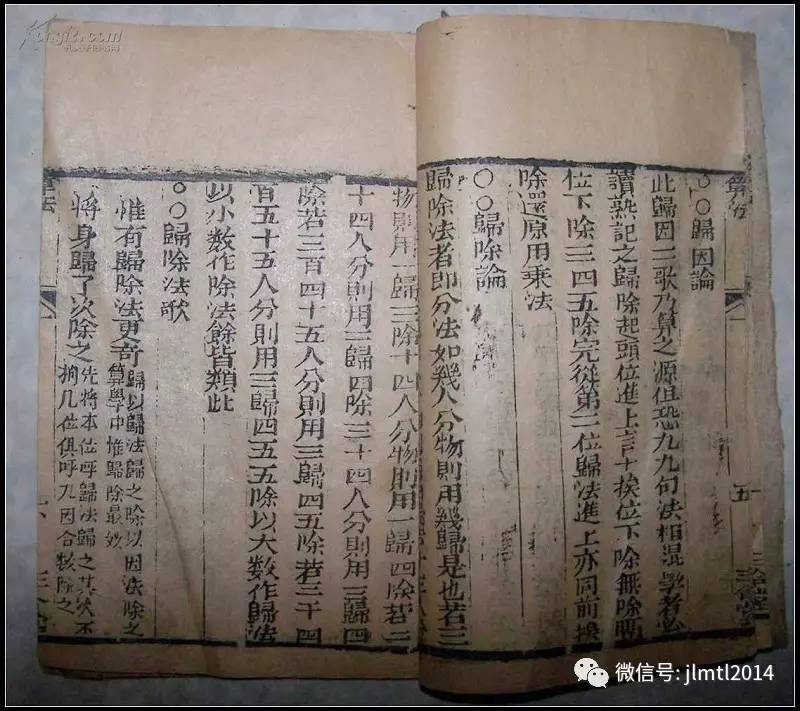 算法
○○歸因論
此歸因二歌乃算之源但恐九九句法相混學者必
讀熟記之歸除起頭位進上言十挨位下除無除
位下除三四五除完從第二位歸法進上亦同前
除還原用乘法
○○歸除論
歸除法者即分法如幾人分物則用幾歸是也若三
物則用一歸三除十四人分物則用一歸四除若二
十四人分則用二歸四除三十四人分則用三歸四
除若三百四十五人分則用三歸四五除若三千四
百五十五人分則用三歸四五五除以大數作歸法
以小數作除法餘皆類此
○○歸除法歌
惟有歸除法更奇
歸以歸法歸之除以因法除之
算學中惟歸除最妙
將身歸了次除之
先將本位呼歸法歸之其次不
拘几位俱呼九因合數除之
算法
五
六
kongfz.com
微信号: jlmtl2014